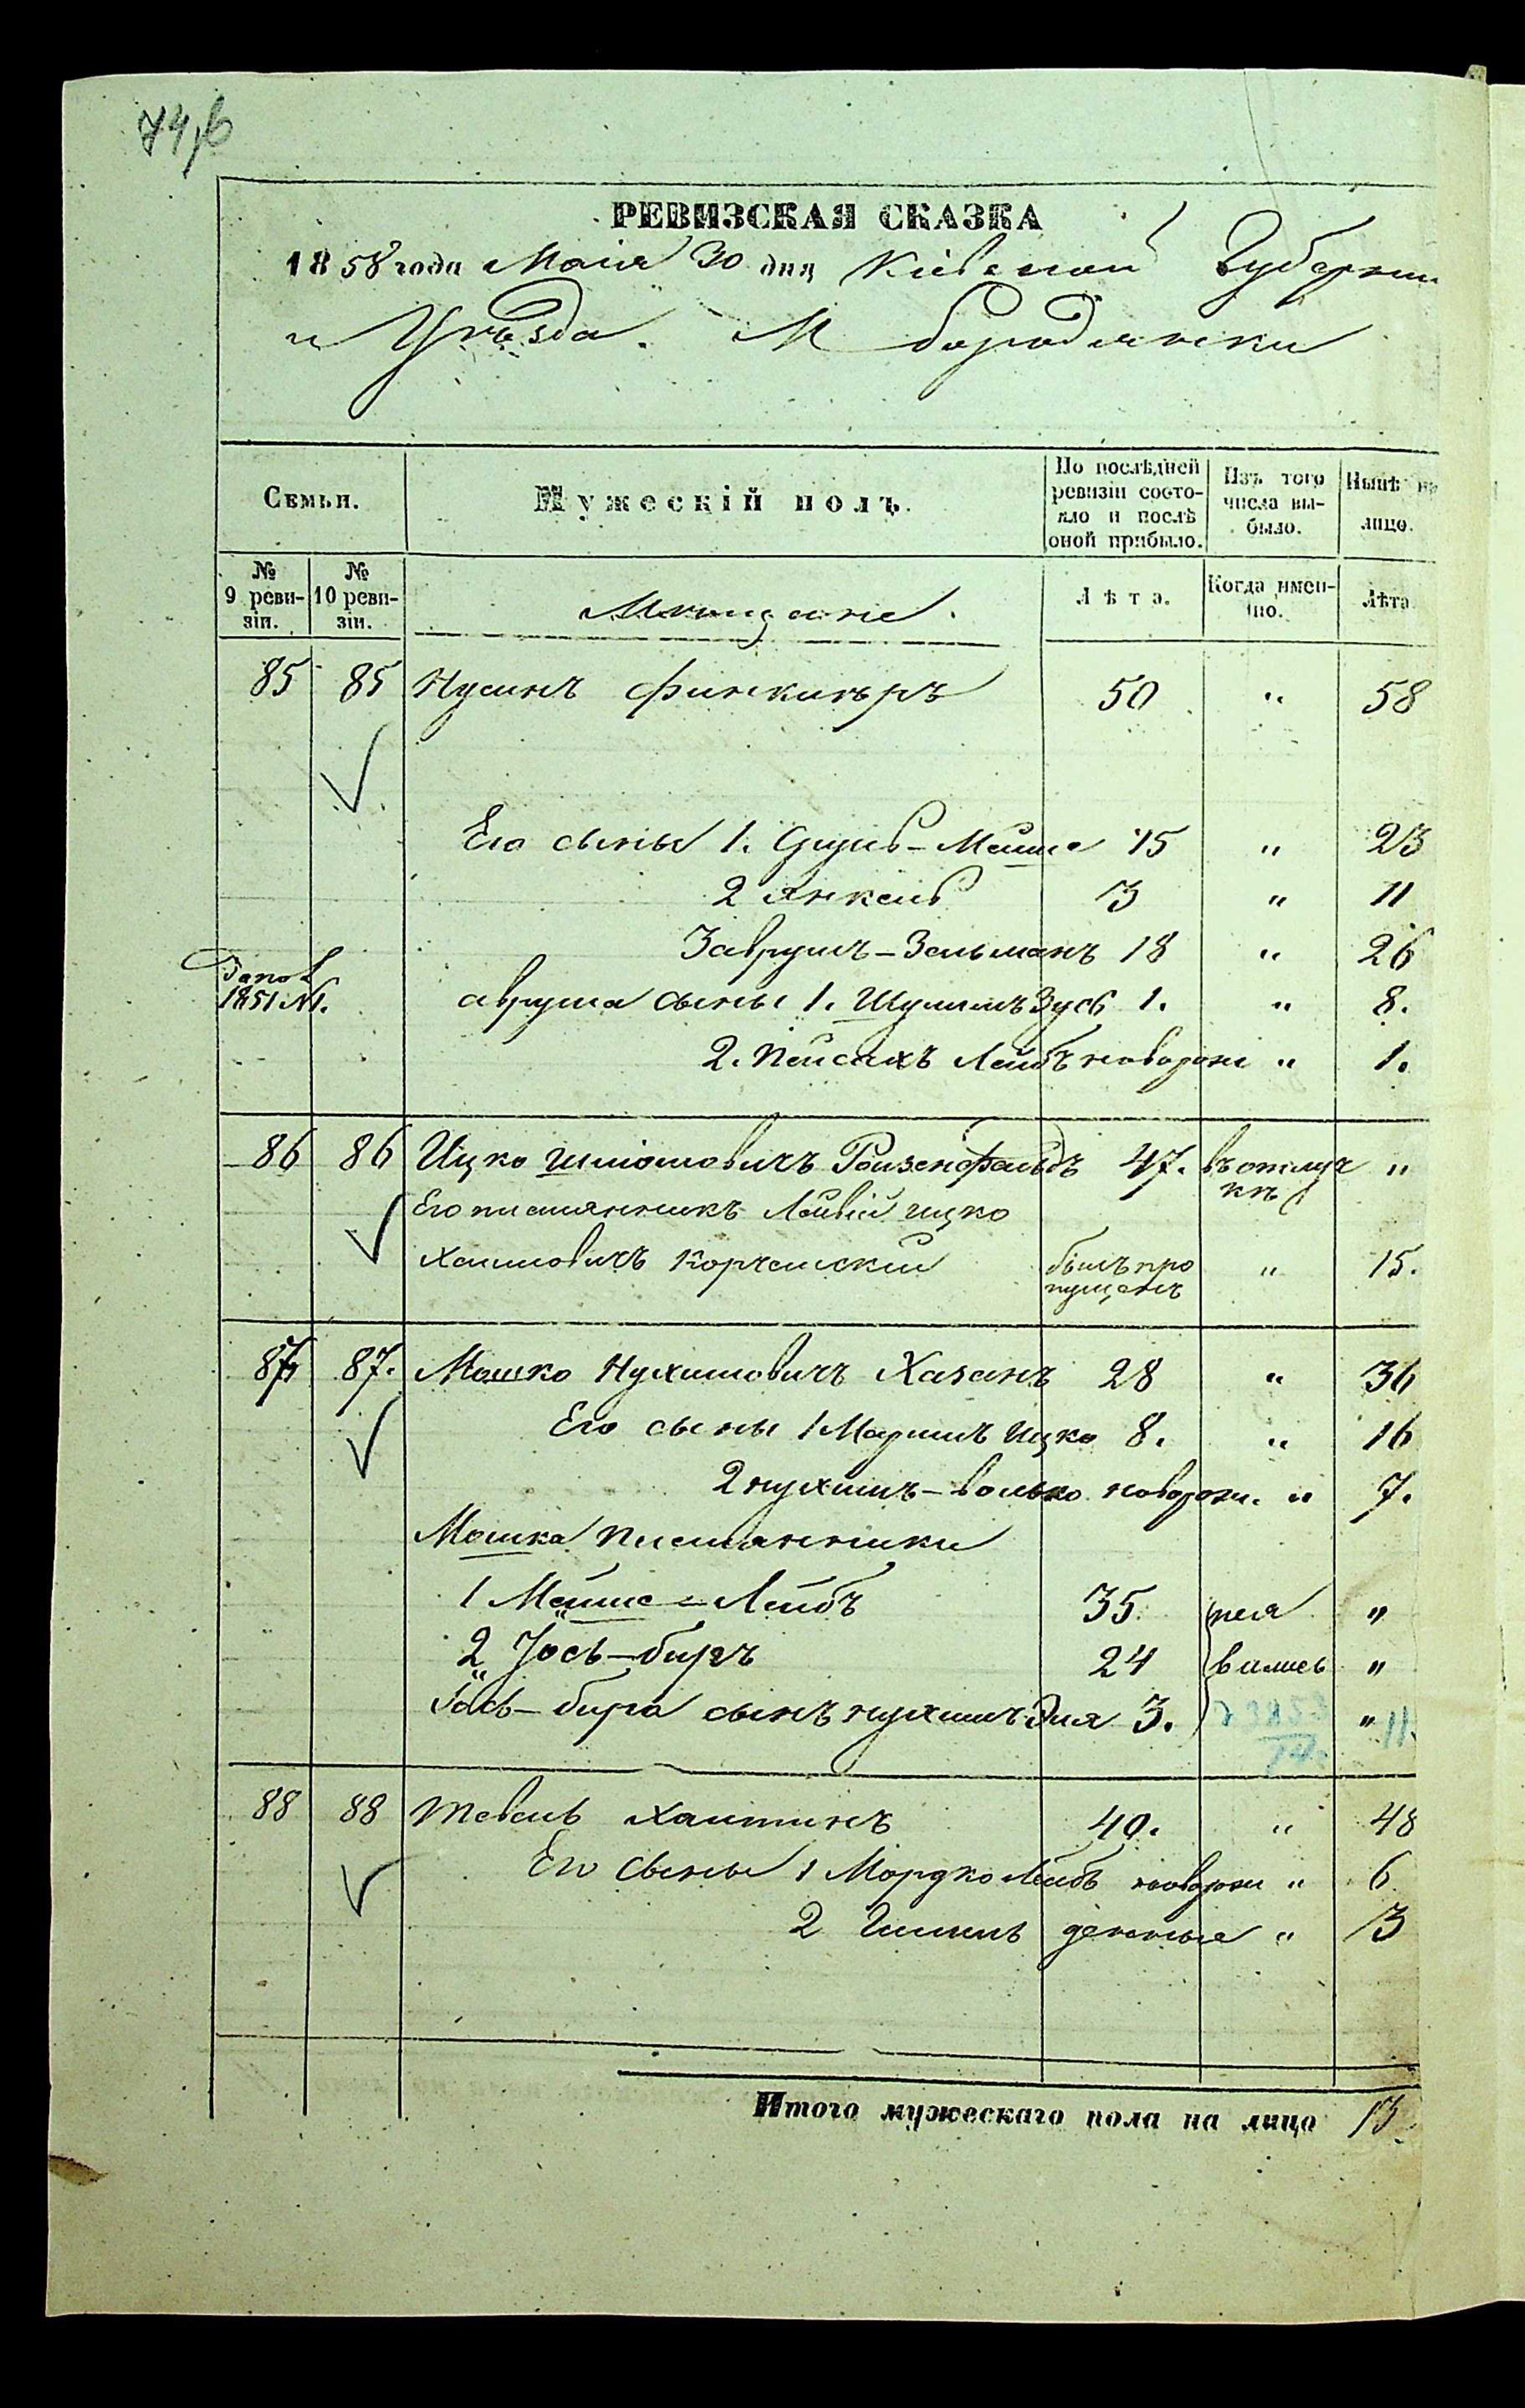 74,б
РЕВИЗСКАЯ СКАЗКА
1858 года Маія 30 дня Кіевской Губерніи
и Уѣзда. М Бородянки
Семьи. Мужескій полъ. По послѣдней ревизіи состояло и послѣ оной прибыло. Изъ того числа выбыло. Нынѣ на лицо.
№ 9 ревизіи. № 10 ревизіи. Мѣщане. Лѣта. Когда именно. Лѣта
85 85 Нусинъ Финкинъръ 50 " 58
Его сыны 1. Мейше 15 " 23
2 Янкель 3 " 11
3 Аврумъ-Зельманъ 18 " 26
1851 №1. Аврума сыны 1. Шулимъ Зусь 1. " 8.
2. Пейсахъ Лейбъ новорож " 1.
86 86 Ицко Шліомовичъ Роизенфельдъ 47. въ отлуч "
кѣ
Его племянникъ Лейвій Ицко
Хаимовичъ Корчемскій былъ про " 15.
пущенъ
87 87. Мошко Нухимовичъ Хазанъ 28 " 36
Его сыны 1 Ицко 8. " 16
2 Нухимъ-Волько новорож. " 7.
Мошка племянники
1 Мейше-Лейбъ 35. "
2 Іось-Беръ 24 "
Іось-Бера сынъ Нухимъ Эля 3. " 11.
88 88 Тевель Хаитинъ 40. " 48
Его сыны 1 Мордко Лейбъ новорож " 6
2 денные " 3
Итого мужескаго пола на лицо 13.